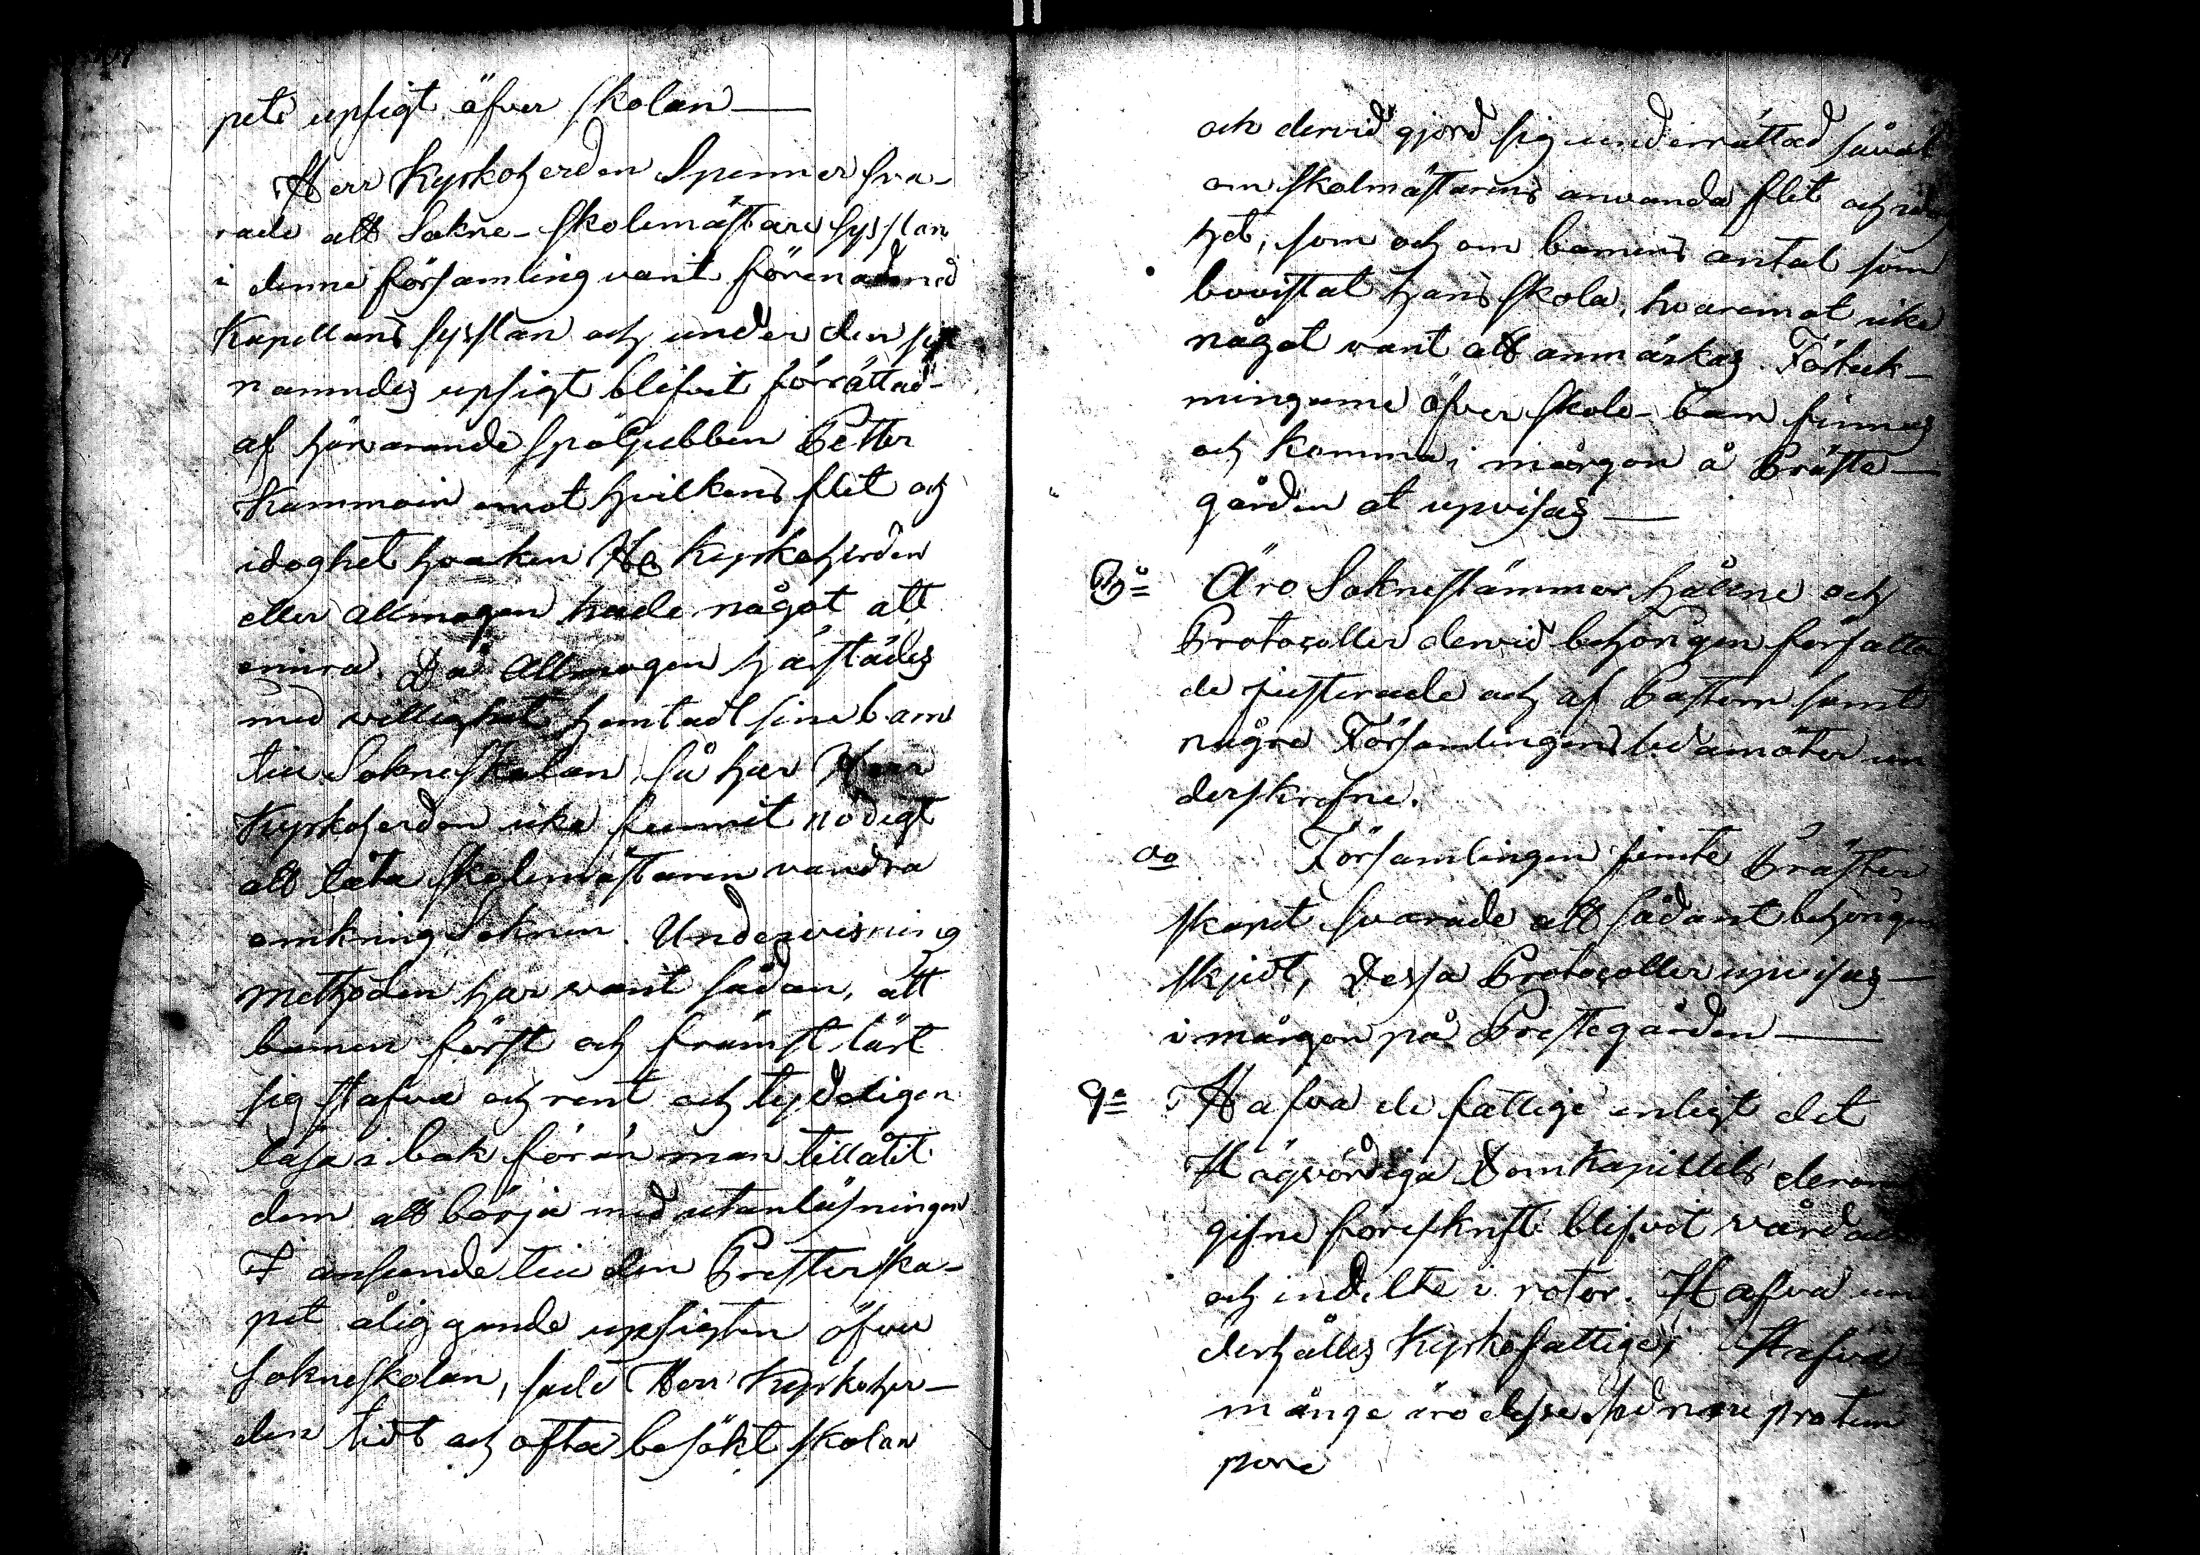 pets upsigt öfver skolan —
Herr Kyrkoherden Spenner sva-
rade att Sokne-skolemästare sysslan
i denne församling varit förenad med
Kapellans sysslan och under den
namndes upsigt blifvit förrättad
af härvarande Spögubben Petter
Kammoin emot hvilkens flit och
idoghet hvarken Hr Kyrkoherden
eller allmogen hade något att
erinra. Då Allmogen härstädes
med willighet hemtadt sine barn
till Sokneskolan så har Herr
Kyrkoherden icke funnit nödigt
att låta skolemästaren vandra
omkring Soknen. Undervisning
methoden har warit sådan, att
barnen först och främst lärt
sig stafva och rent och tydeligen
läsa i bok förän man tillåtit
dem att börja med utanläsningen
I anseende till den Presterska-
pet åliggande upsigten öfver
sokneskolan, sade Herr Kyrkoher-
den tidt och ofta besökt skolan
och dervid gjord sig underrättad såväl
om skolmästarens anvanda flit och
het, som och om barnens antal som
bevistat hans skola, hvaremot icke
något varit att anmärkas. Förtek-
ningarne öfver skole-barn finnas
och komma i mårgon å Präste-
gården at upvisas —
8o Äro Soknestämmor hållne och
Protocoller dervid behörigen författa
de justerade och af Pastorn samt
några Församlingens ledamöter un
derskrefne.
Församlingen jemte Präster
skapet svarade att sådant behörigen
skjedt, Dessa Protocoller upvisas
i mårgon på Prestegården —
9o Hafva de fattige enligt det
Högvördiga Domkapitlets derom
gifne föreskrift blifvit vårdade
och indelte i rotor. Hafva un
derhålles Kyrkofattige;
månge äro desse pro tem
pore